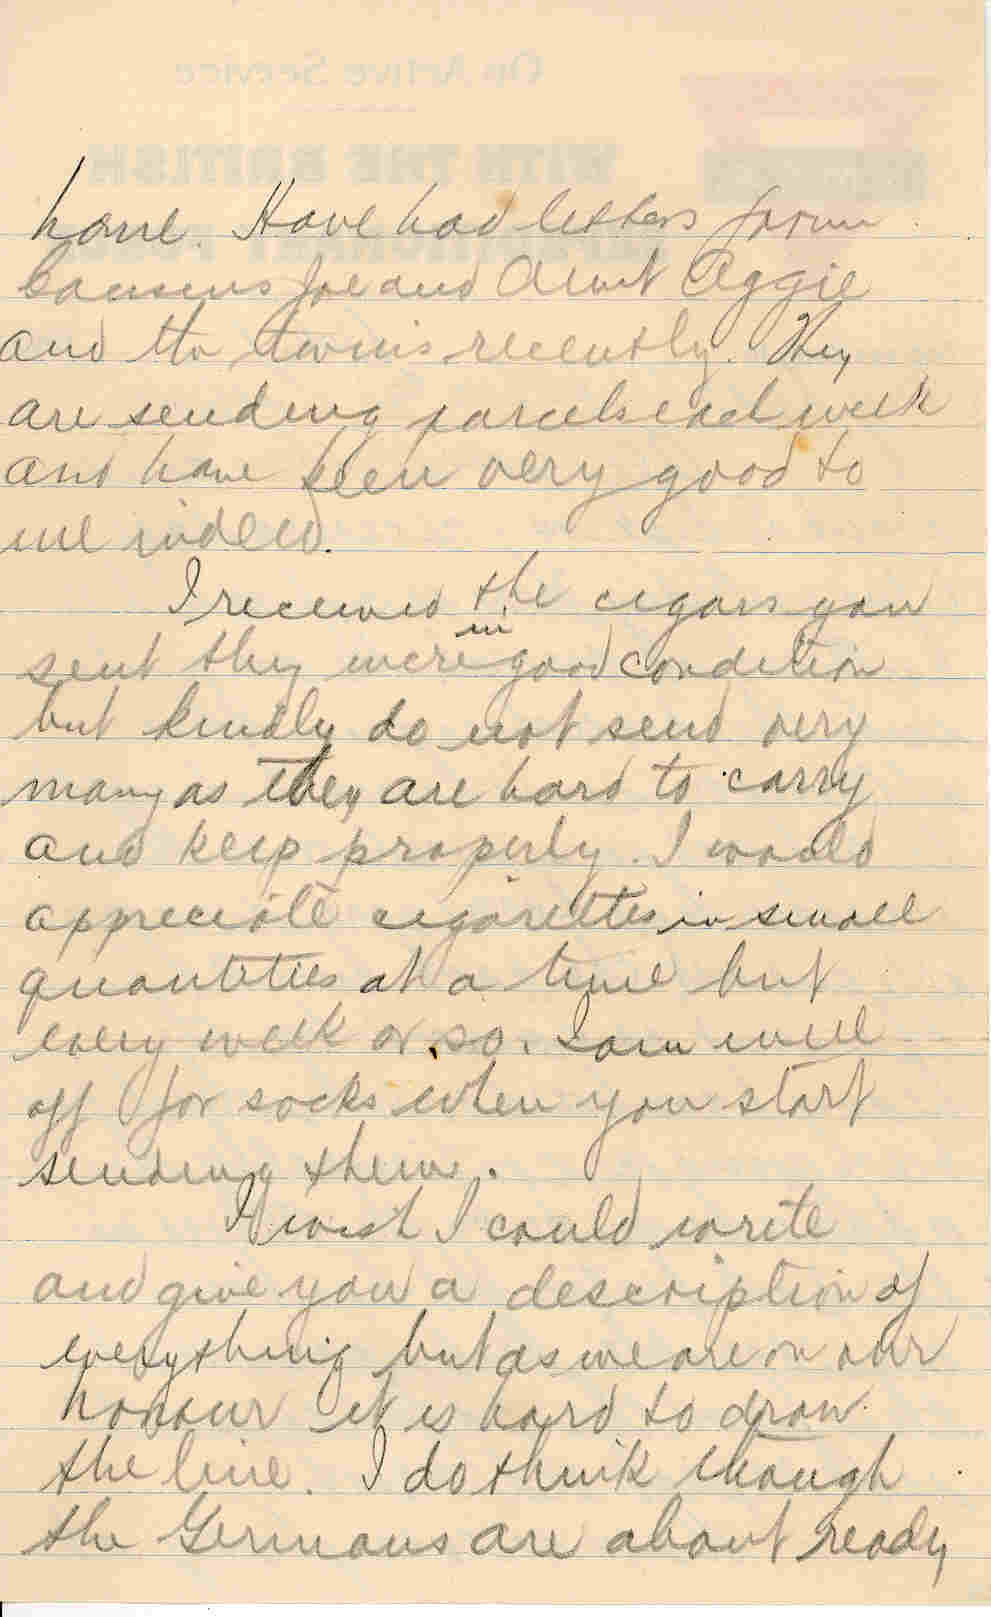 On Active Service
WITH THE BRITISH
EXPEDITIONARY FORCE
home. Have had letters from
Cousins Joe and Aunt Aggie
and the twins recently. They
are sending parcels each week
and have been very good to
me indeed.
I received the cigars you
sent they were in good condition
but kindly do not send very
many as they are hard to carry
and keep properly. I would
appreciate cigarettes in small
quantities at a time but
every week or so. I am well
off for socks when you start
sending them.
I wish I could write
and give you a description of
everything but as we are on our
honour it is hard to draw
the line. I do think though
the Germans are about ready